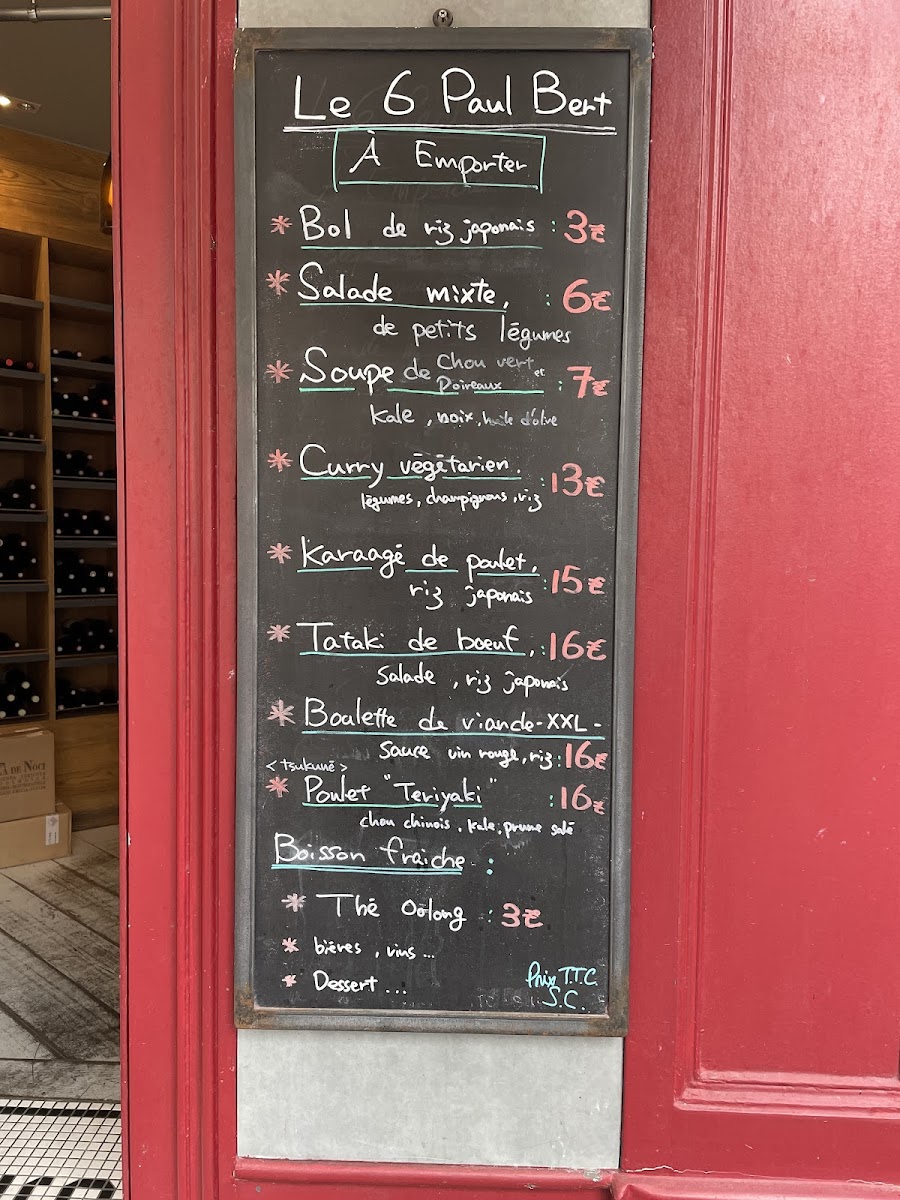 Le 6 Paul Bert
À Emporter
* Bol de riz japonais : 3€
* Salade mixte, : 6€
de petits légumes
* Soupe de Chou vert et Poireaux : 7€
Kale, noix, huile d'olive
* Curry végétarien. : 13€
légumes, champignons, riz
* Karaagé de poulet, : 15€
riz japonais
* Tataki de boeuf, : 16€
Salade, riz japonais
* Boulette de viande -XXL-
Sauce vin rouge, riz : 16€
<Tsukuné>
* Poulet "Teriyaki" : 16€
chou chinois, kale, prune salé
Boisson fraiche :
* Thé Oolong : 3€
* bières, vins...
* Dessert...
Prix T.T.C.
S.C.
A DE NOCI